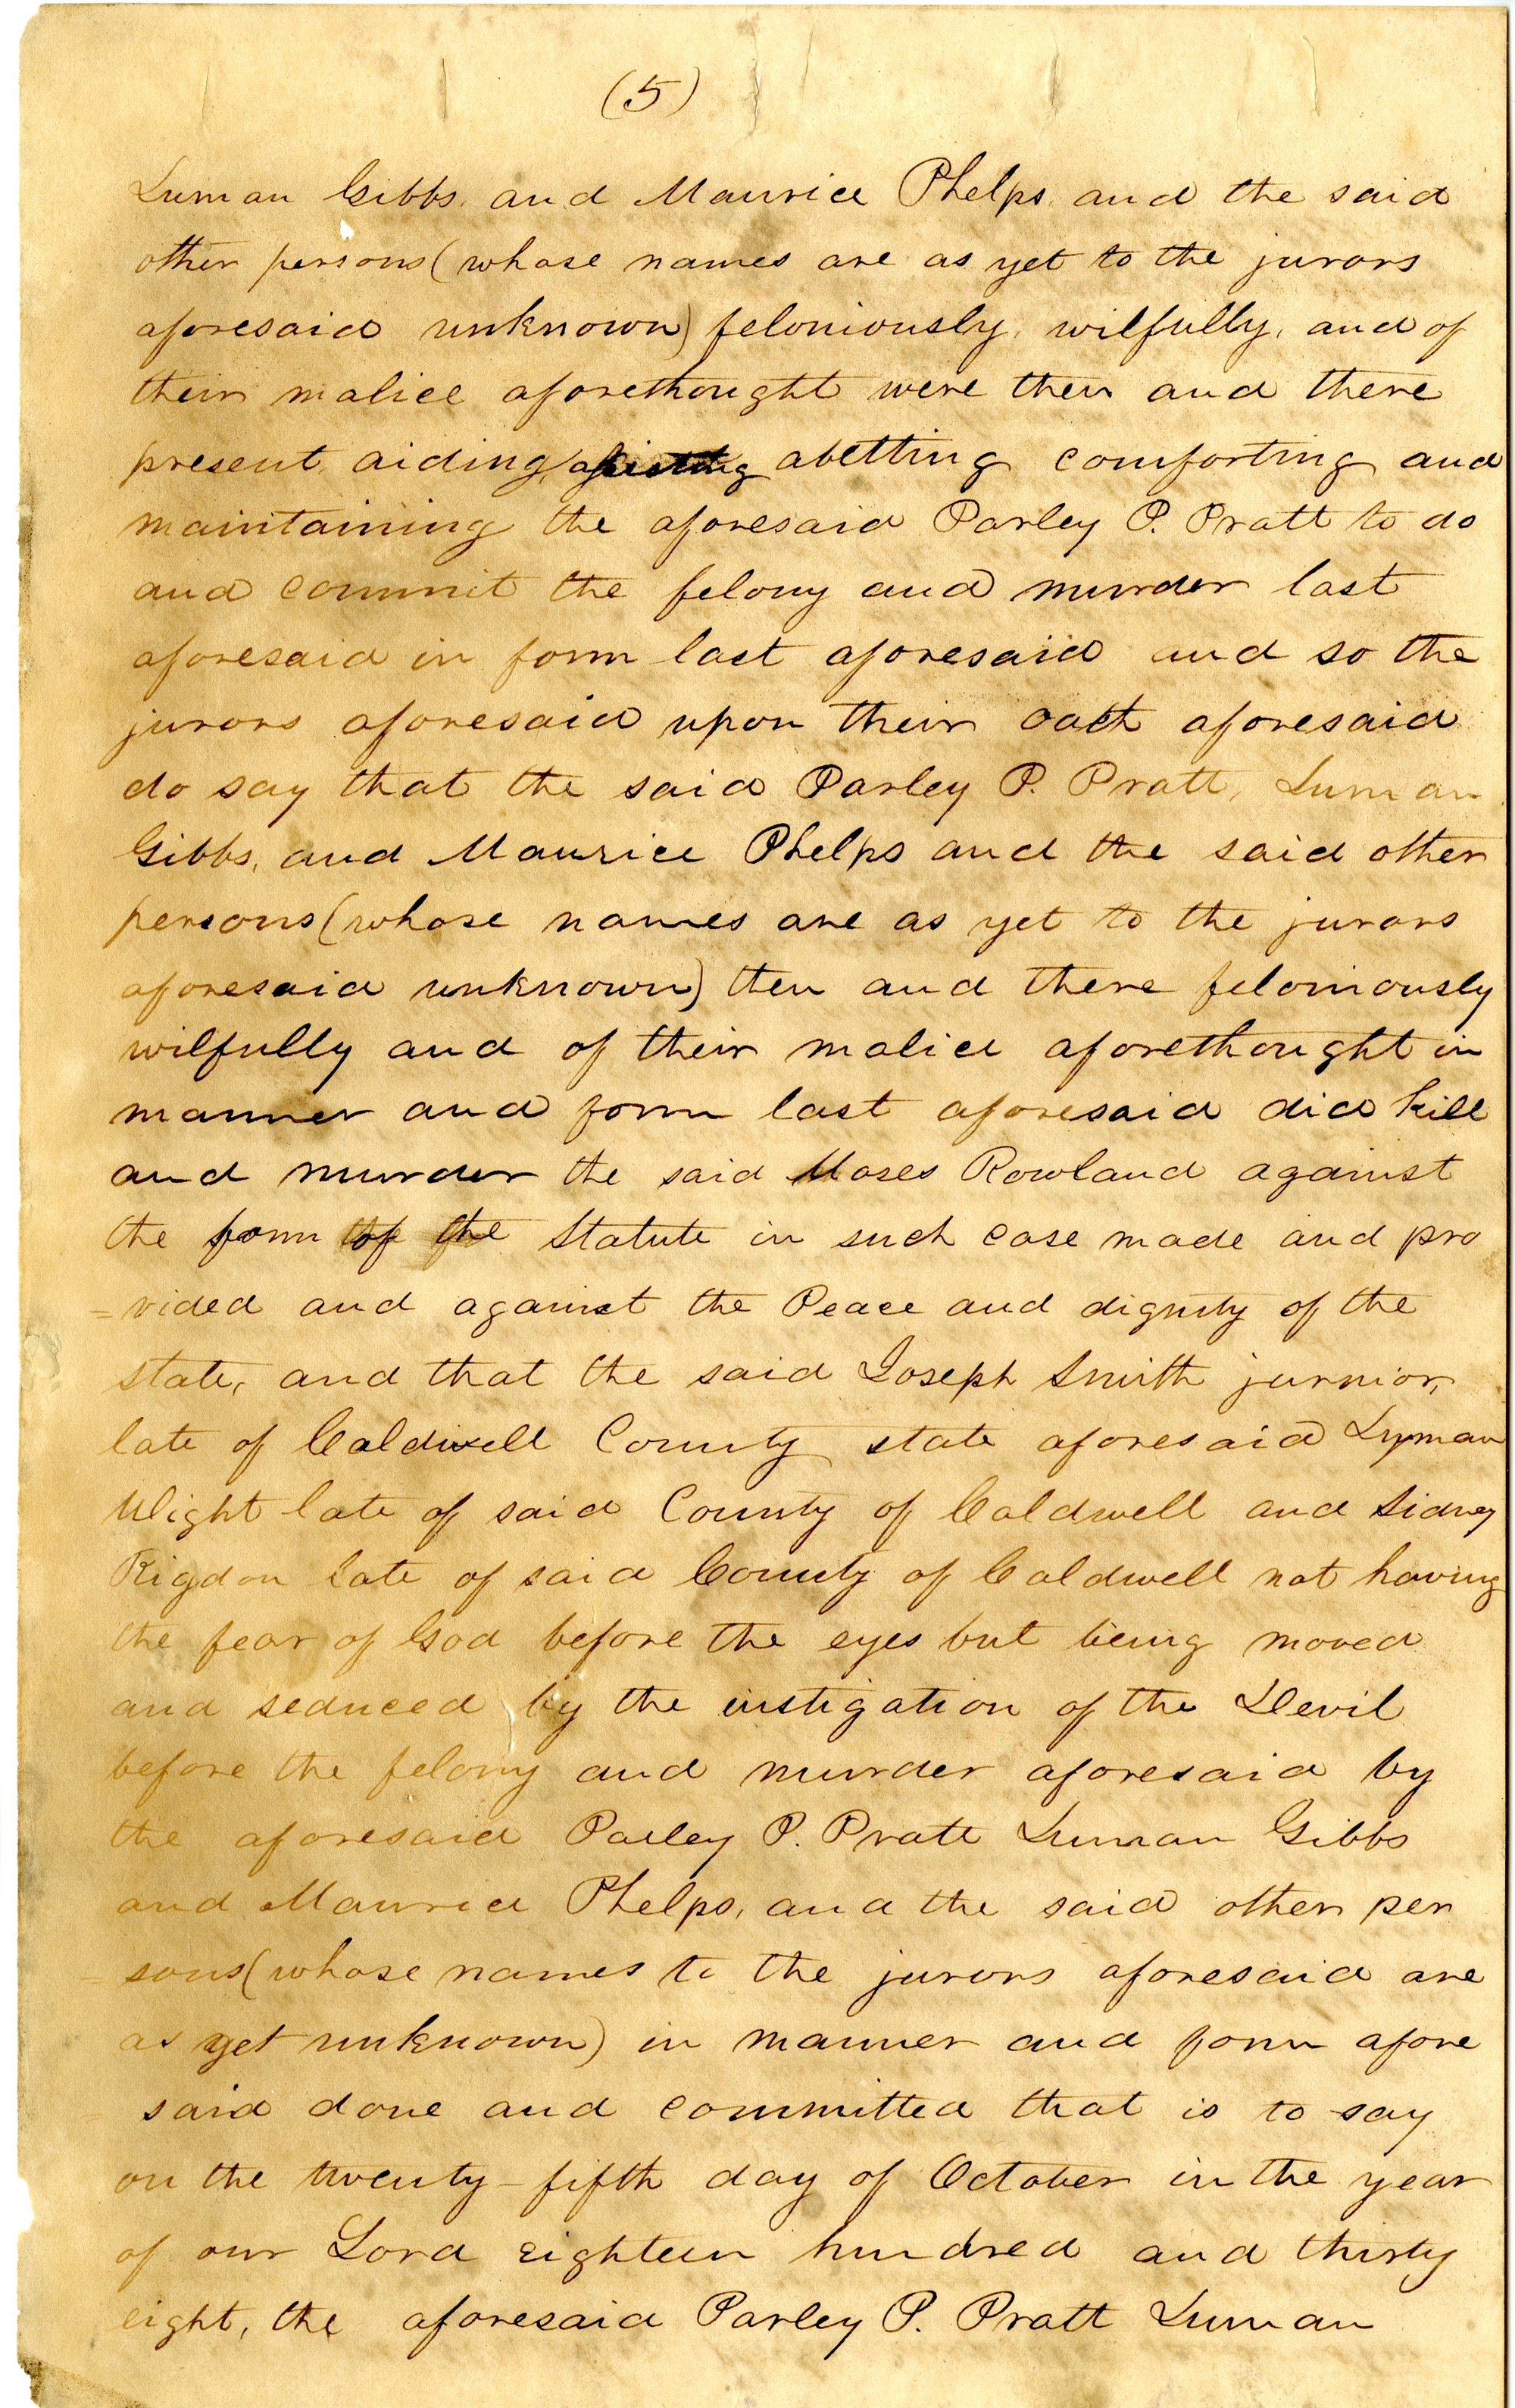 (5)
Luman Gibbs, and Maurice Phelps, and the said
other persons (whose names are as yet to the jurors
aforesaid unknown) feloniously, wilfully, and of
their malice aforethought were then and there
present, aiding, abetting comforting and
maintaining the aforesaid Parley P. Pratt to do
and commit the felony and murder last
aforesaid in form last aforesaid and so the
jurors aforesaid upon their oath aforesaid
do say that the said Parley P. Pratt, Luman
Gibbs, and Maurice Phelps and the said other
persons (whose names are as yet to the jurors
aforesaid unknown) then and there feloniously
wilfully and of their malice aforethought in
manner and form last aforesaid did kill
and murder the said Moses Rowland against
the form of the Statute in such case made and pro
=vided and against the Peace and dignity of the
state, and that the said Joseph Smith junior,
late of Caldwell County state aforesaid Lyman
Wight late of said County of Caldwell and Sidney
Rigdon late of said County of Caldwell not having
the fear of God before the eyes but being moved
and seduced by the instigation of the Devil
before the felony and murder aforesaid by
the aforesaid Parley P. Pratt Luman Gibbs
and Maurice Phelps, and the said other per
=sons (whose names to the jurors aforesaid are
as yet unknown) in manner and form afore
said done and committed that is to say
on the twenty-fifth day of October in the year
of our Lord eighteen hundred and thirty
eight, the aforesaid Parley P. Pratt Luman